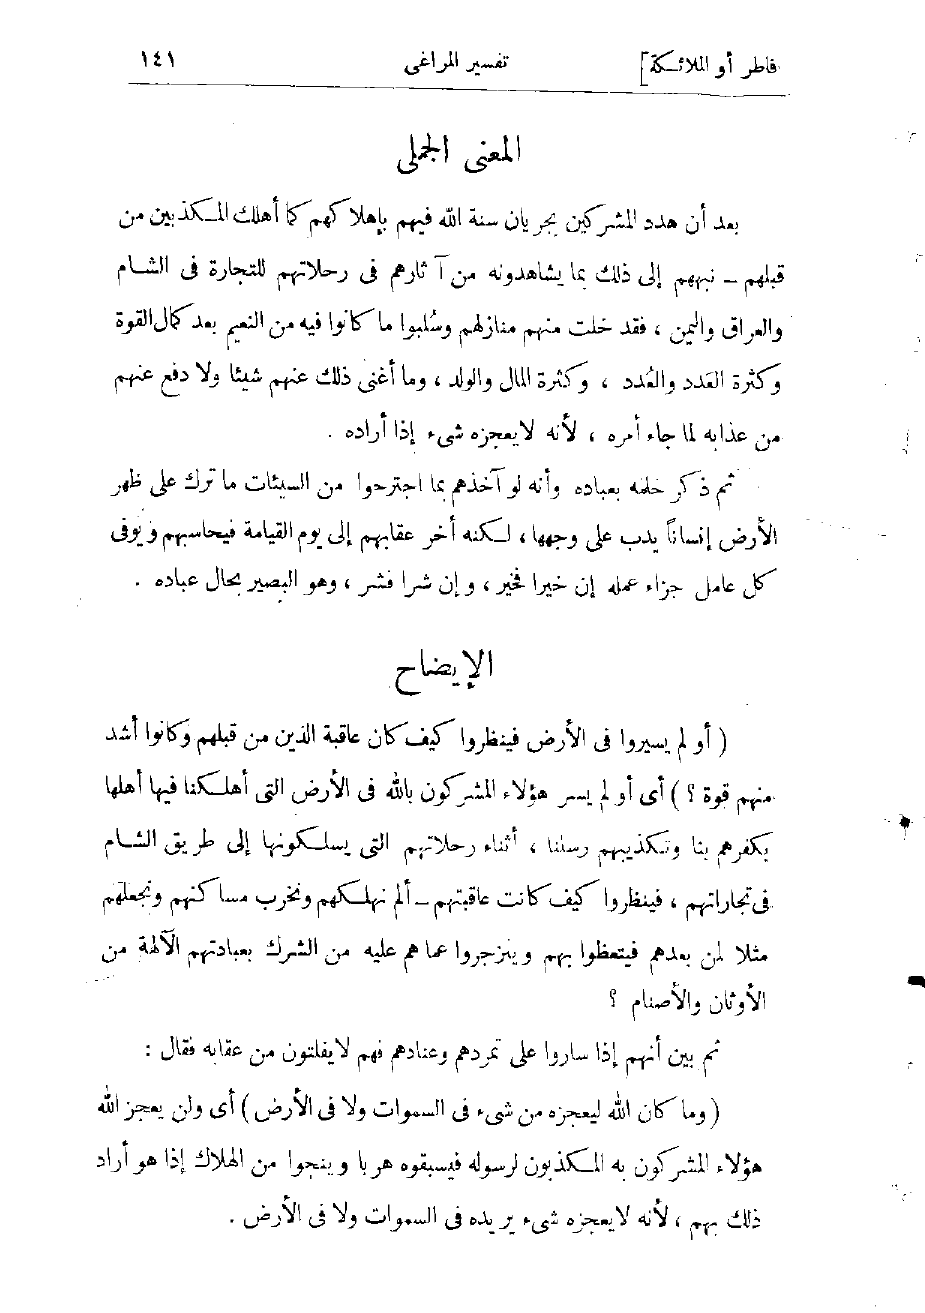 فاطر أو الملائكة] تفسير المراغى ١٤١
المعنى الجملى
بعد أن هدد المشركين بجريان سنة الله فيهم بإهلاكهم كما أهلك المكذبين من
قبلهم – نبههم إلى ذلك بما يشاهدونه من آثارهم فى رحلاتهم للتجارة فى الشام
والعراق واليمن ، فقد خلت منهم منازلهم وسُلبوا ما كانوا فيه من النعيم بعد كمال القوة
وكثرة العَدد والعُدد ، وكثرة المال والولد ، وما أغنى ذلك عنهم شيئا ولا دفع عنهم
من عذابه لما جاء أمره ، لأنه لايعجزه شىء إذا أراده .
ثم ذكر حلمه بعباده وأنه لو آخذهم بما اجترحوا من السيئات ما ترك على ظهر
الأرض إنساناً يدب على وجهها ، لكنه أخر عقابهم إلى يوم القيامة فيحاسبهم ويُوفى
كل عامل جزاء عمله إن خيرا فخير ، وإن شرا فشر ، وهو البصير بحال عباده .
الإيضاح
( أو لم يسيروا فى الأرض فينظروا كيف كان عاقبة الذين من قبلهم وكانوا أشد
منهم قوة ؟ ) أى أو لم يسر هؤلاء المشركون بالله فى الأرض التى أهلكنا فيها أهلها
بكفرهم بنا وتكذيبهم رسلنا ، أثناء رحلاتهم التى يسلكونها إلى طريق الشام
فى تجاراتهم ، فينظروا كيف كانت عاقبتهم – ألم نهلكهم ونخرب مساكنهم ونجعلهم
مثلا لمن بعدهم فيتعظوا بهم وينزجروا عما هم عليه من الشرك بعبادتهم الآلهة من
الأوثان والأصنام ؟
ثم بين أنهم إذا ساروا على تمردهم وعنادهم فهم لايفلتون من عقابه فقال :
( وما كان الله ليعجزه من شىء فى السموات ولا فى الأرض ) أى ولن يعجز الله
هؤلاء المشركون به المكذبون لرسوله فيسبقوه هربا وينجوا من الهلاك إذا هو أراد
ذلك بهم ، لأنه لايعجزه شىء يريده فى السموات ولا فى الأرض .